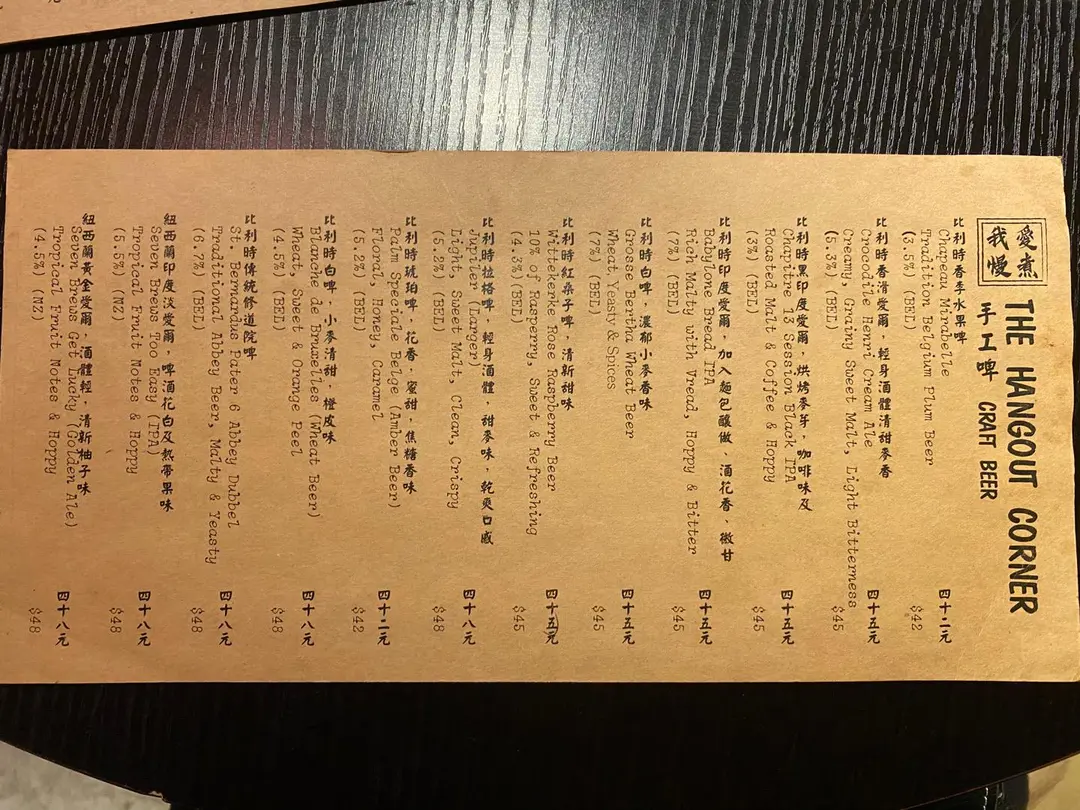 愛煮
我慢
THE HANGOUT CORNER
手工啤 CRAFT BEER
比利時香李水果啤
Chapeau Mirabelle
Tradition Belgium Plum Beer
(3.5%)(BEL)
四十二元
$42
比利時香滑愛爾，輕身酒體清甜麥香
Crocodile Henri Cream Ale
Creamy, Grainy Sweet Malt, Light Bitterness
(5.3%)(BEL)
四十五元
$45
比利時黑印度愛爾，烘烤麥芽，咖啡味及
Chapitre 13 Session Black IPA
Roasted Malt & Coffee & Hoppy
(3%)(BEL)
四十五元
$45
比利時印度愛爾，加入麵包釀做，酒花香，微甘
Babylone Bread IPA
Rich Malty with Vread, Hoppy & Bitter
(7%)(BEL)
四十五元
$45
比利時白啤，濃郁小麥香味
Grosse Bertha Wheat Beer
Wheat, Yeasty & Spices
(7%)(BEL)
四十五元
$45
比利時紅桑子啤，清新甜味
Wittekerke Rose Raspberry Beer
10% of Rasperry, Sweet & Refreshing
(4.3%)(BEL)
四十五元
$45
比利時拉格啤，輕身酒體，甜麥味，乾爽口感
Jupiler (Larger)
Light, Sweet Malt, Clean, Crispy
(5.2%)(BEL)
四十八元
$48
比利時琥珀啤，花香，蜜甜，焦糖香味
Palm Speciale Belge (Amber Beer)
Floral, Honey, Caramel
(5.2%)(BEL)
四十二元
$42
比利時白啤，小麥清甜，橙皮味
Blanche de Bruxelles (Wheat Beer)
Wheat, Sweet & Orange Peel
(4.5%)(BEL)
四十八元
$48
比利時傳統修道院啤
St. Bernardus Pater 6 Abbey Dubbel
Traditional Abbey Beer, Malty & Yeasty
(6.7%)(BEL)
四十八元
$48
紐西蘭印度淡愛爾，啤酒花白及熱帶果味
Seven Brews Too Easy (IPA)
Tropical Fruit Notes & Hoppy
(5.5%)(NZ)
四十八元
$48
紐西蘭黃金愛爾，酒體輕，清新柚子味
Seven Brews Get Lucky (Golden Ale)
Tropical Fruit Notes & Hoppy
(4.5%)(NZ)
四十八元
$48